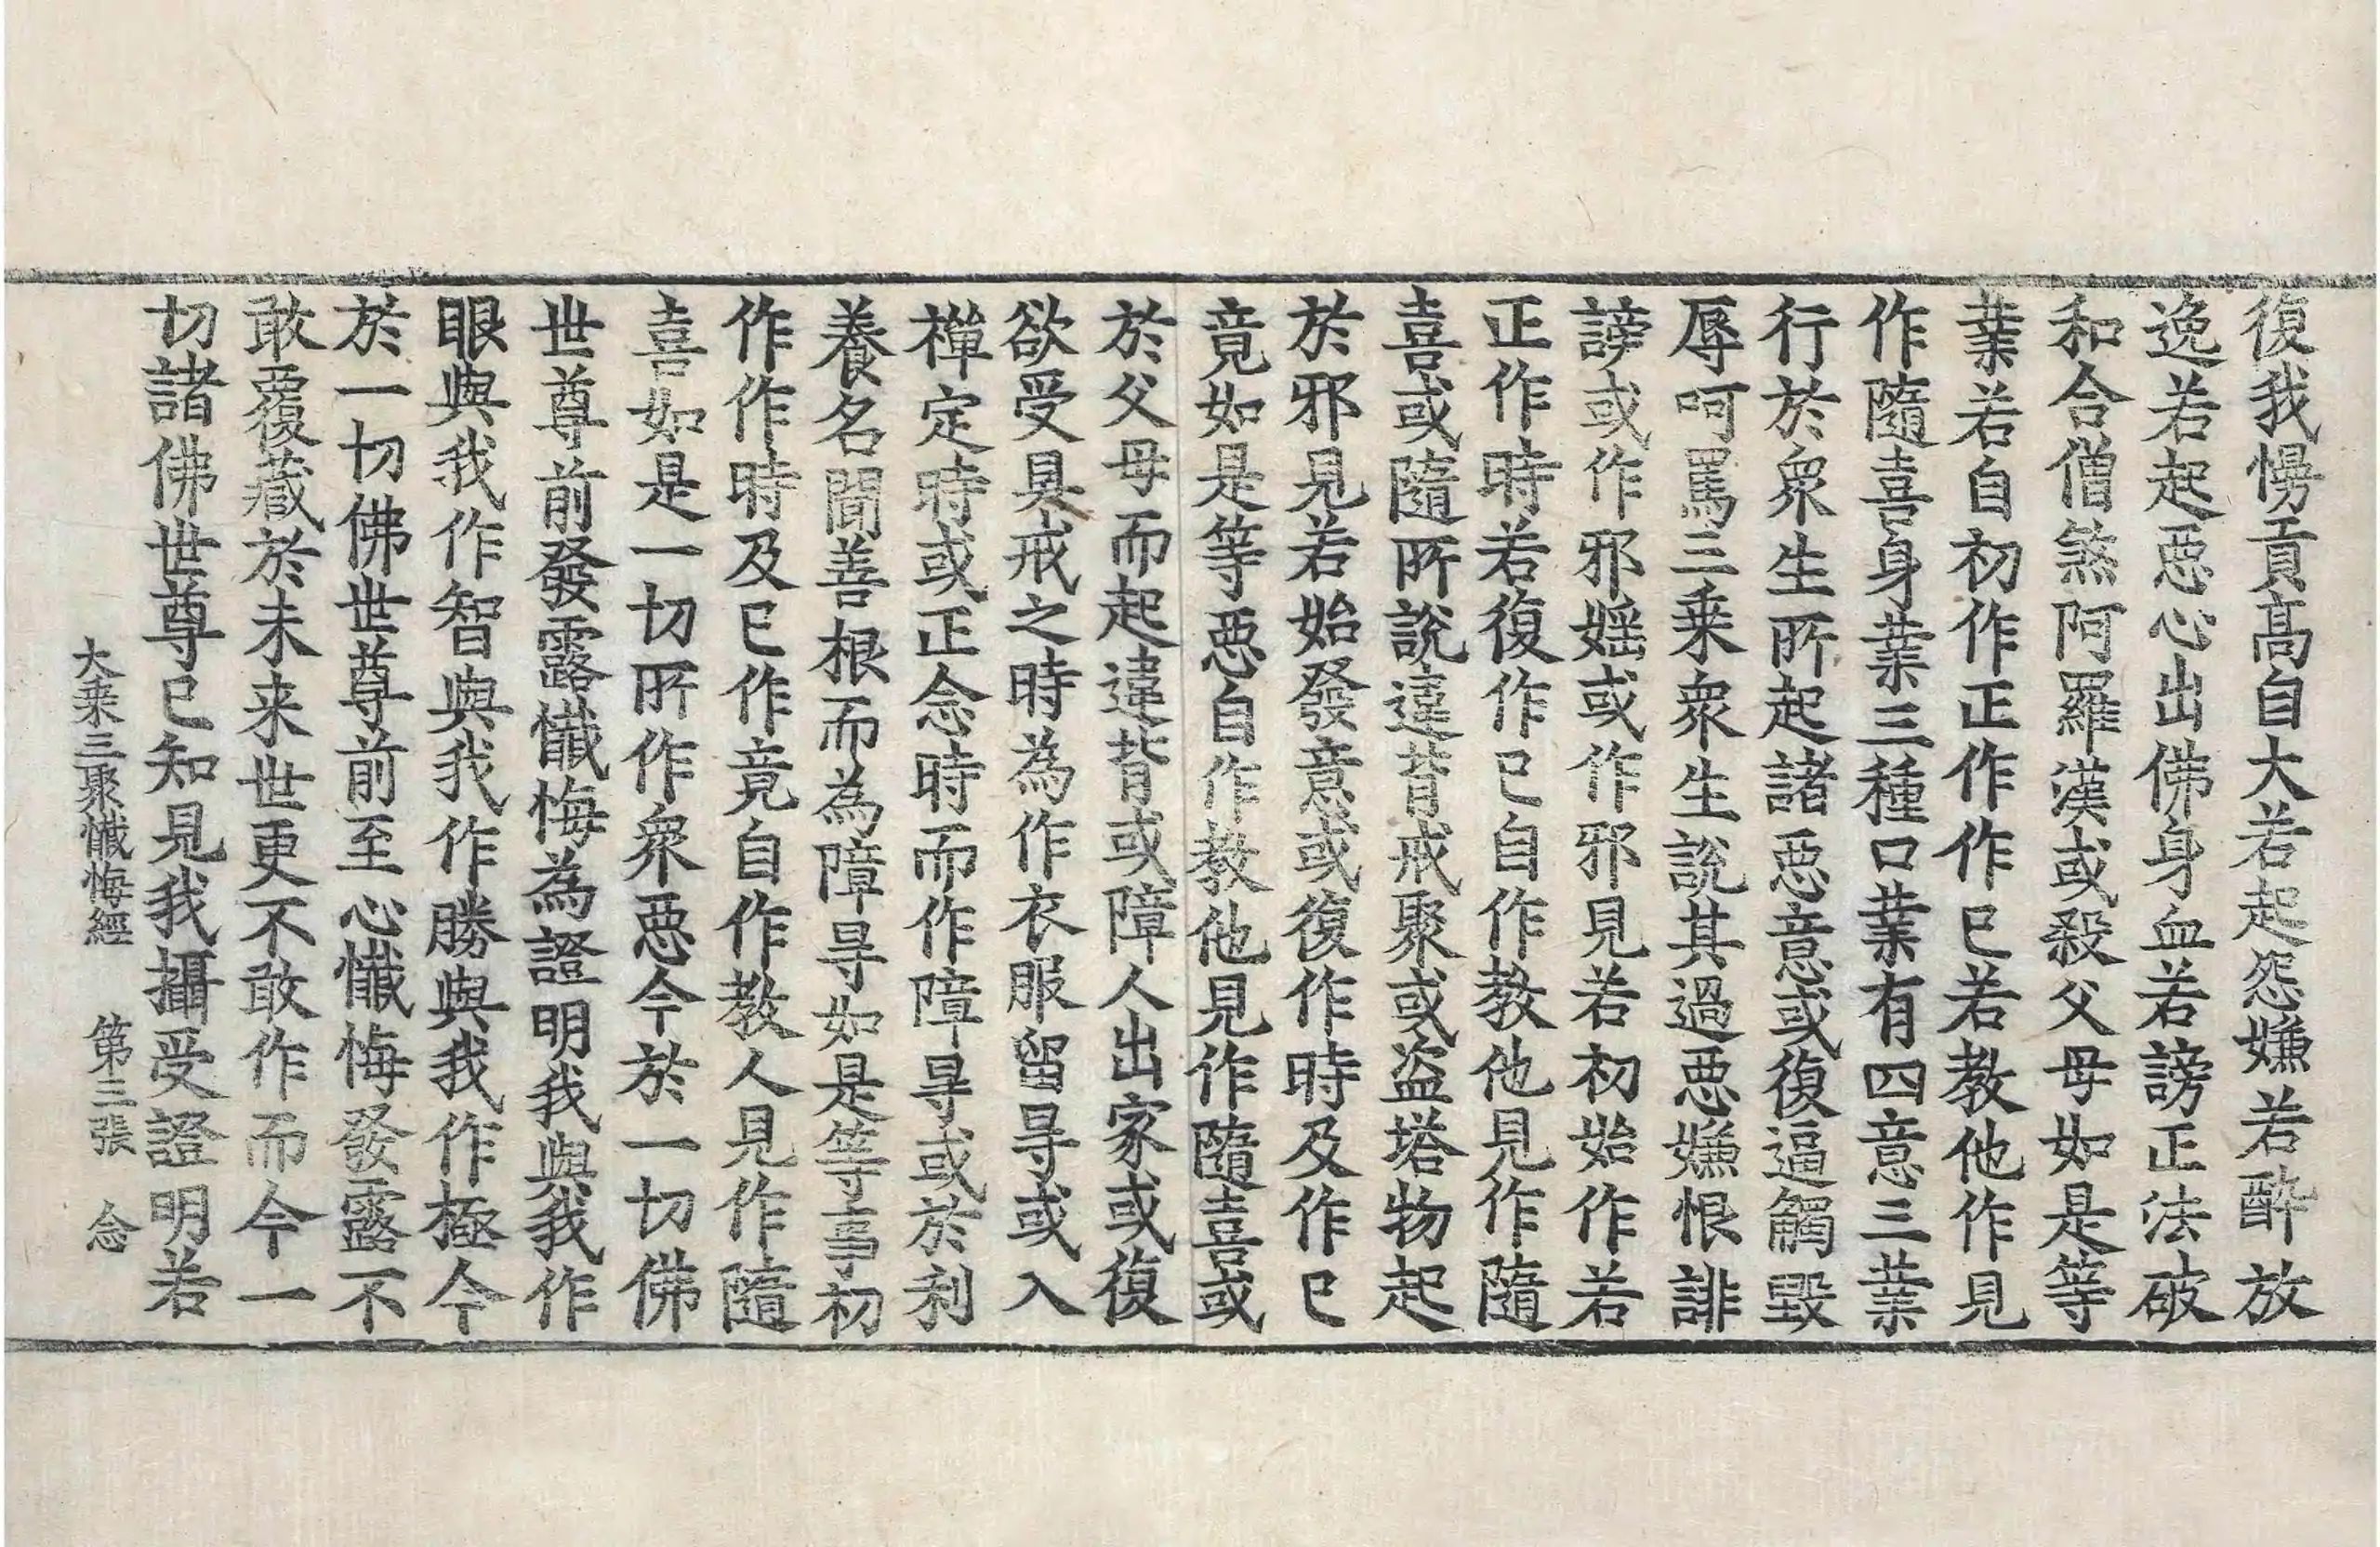 復我慢貢髙自大若起怨嫌若酔放
逸若起惡心出佛身血若謗正法破
和合僧煞阿羅漢或殺父母如是等
業若自初作正作作已若教他作見
作隨喜身業三種口業有四意三業
行於衆生所起諸惡意或復逼觸毀
辱呵罵三乗衆生說其過惡嫌恨誹
謗或作邪婬或作邪見若初始作若
正作時若復作已自作教他見作隨
喜或隨所說違背戒聚或盗塔物起
於邪見若始發意或復作時及作已
竟如是等惡自作教他見作隨喜或
於父母而起違背或障人出家或復
欲受具戒之時為作衣服留㝵或入
禪定時或正念時而作障㝵或於利
養名聞善根而為障㝵如是等事初
作作時及已作竟自作教人見作隨
喜如是一切所作衆惡今於一切佛
世尊前發露懺悔為證明我與我作
眼與我作智與我作勝與我作極今
於一切佛世尊前至心懺悔發露不
敢覆藏於未来世更不敢作而今一
切諸佛世尊已知見我攝受證明若
大乗三聚懺悔經 第三張 念